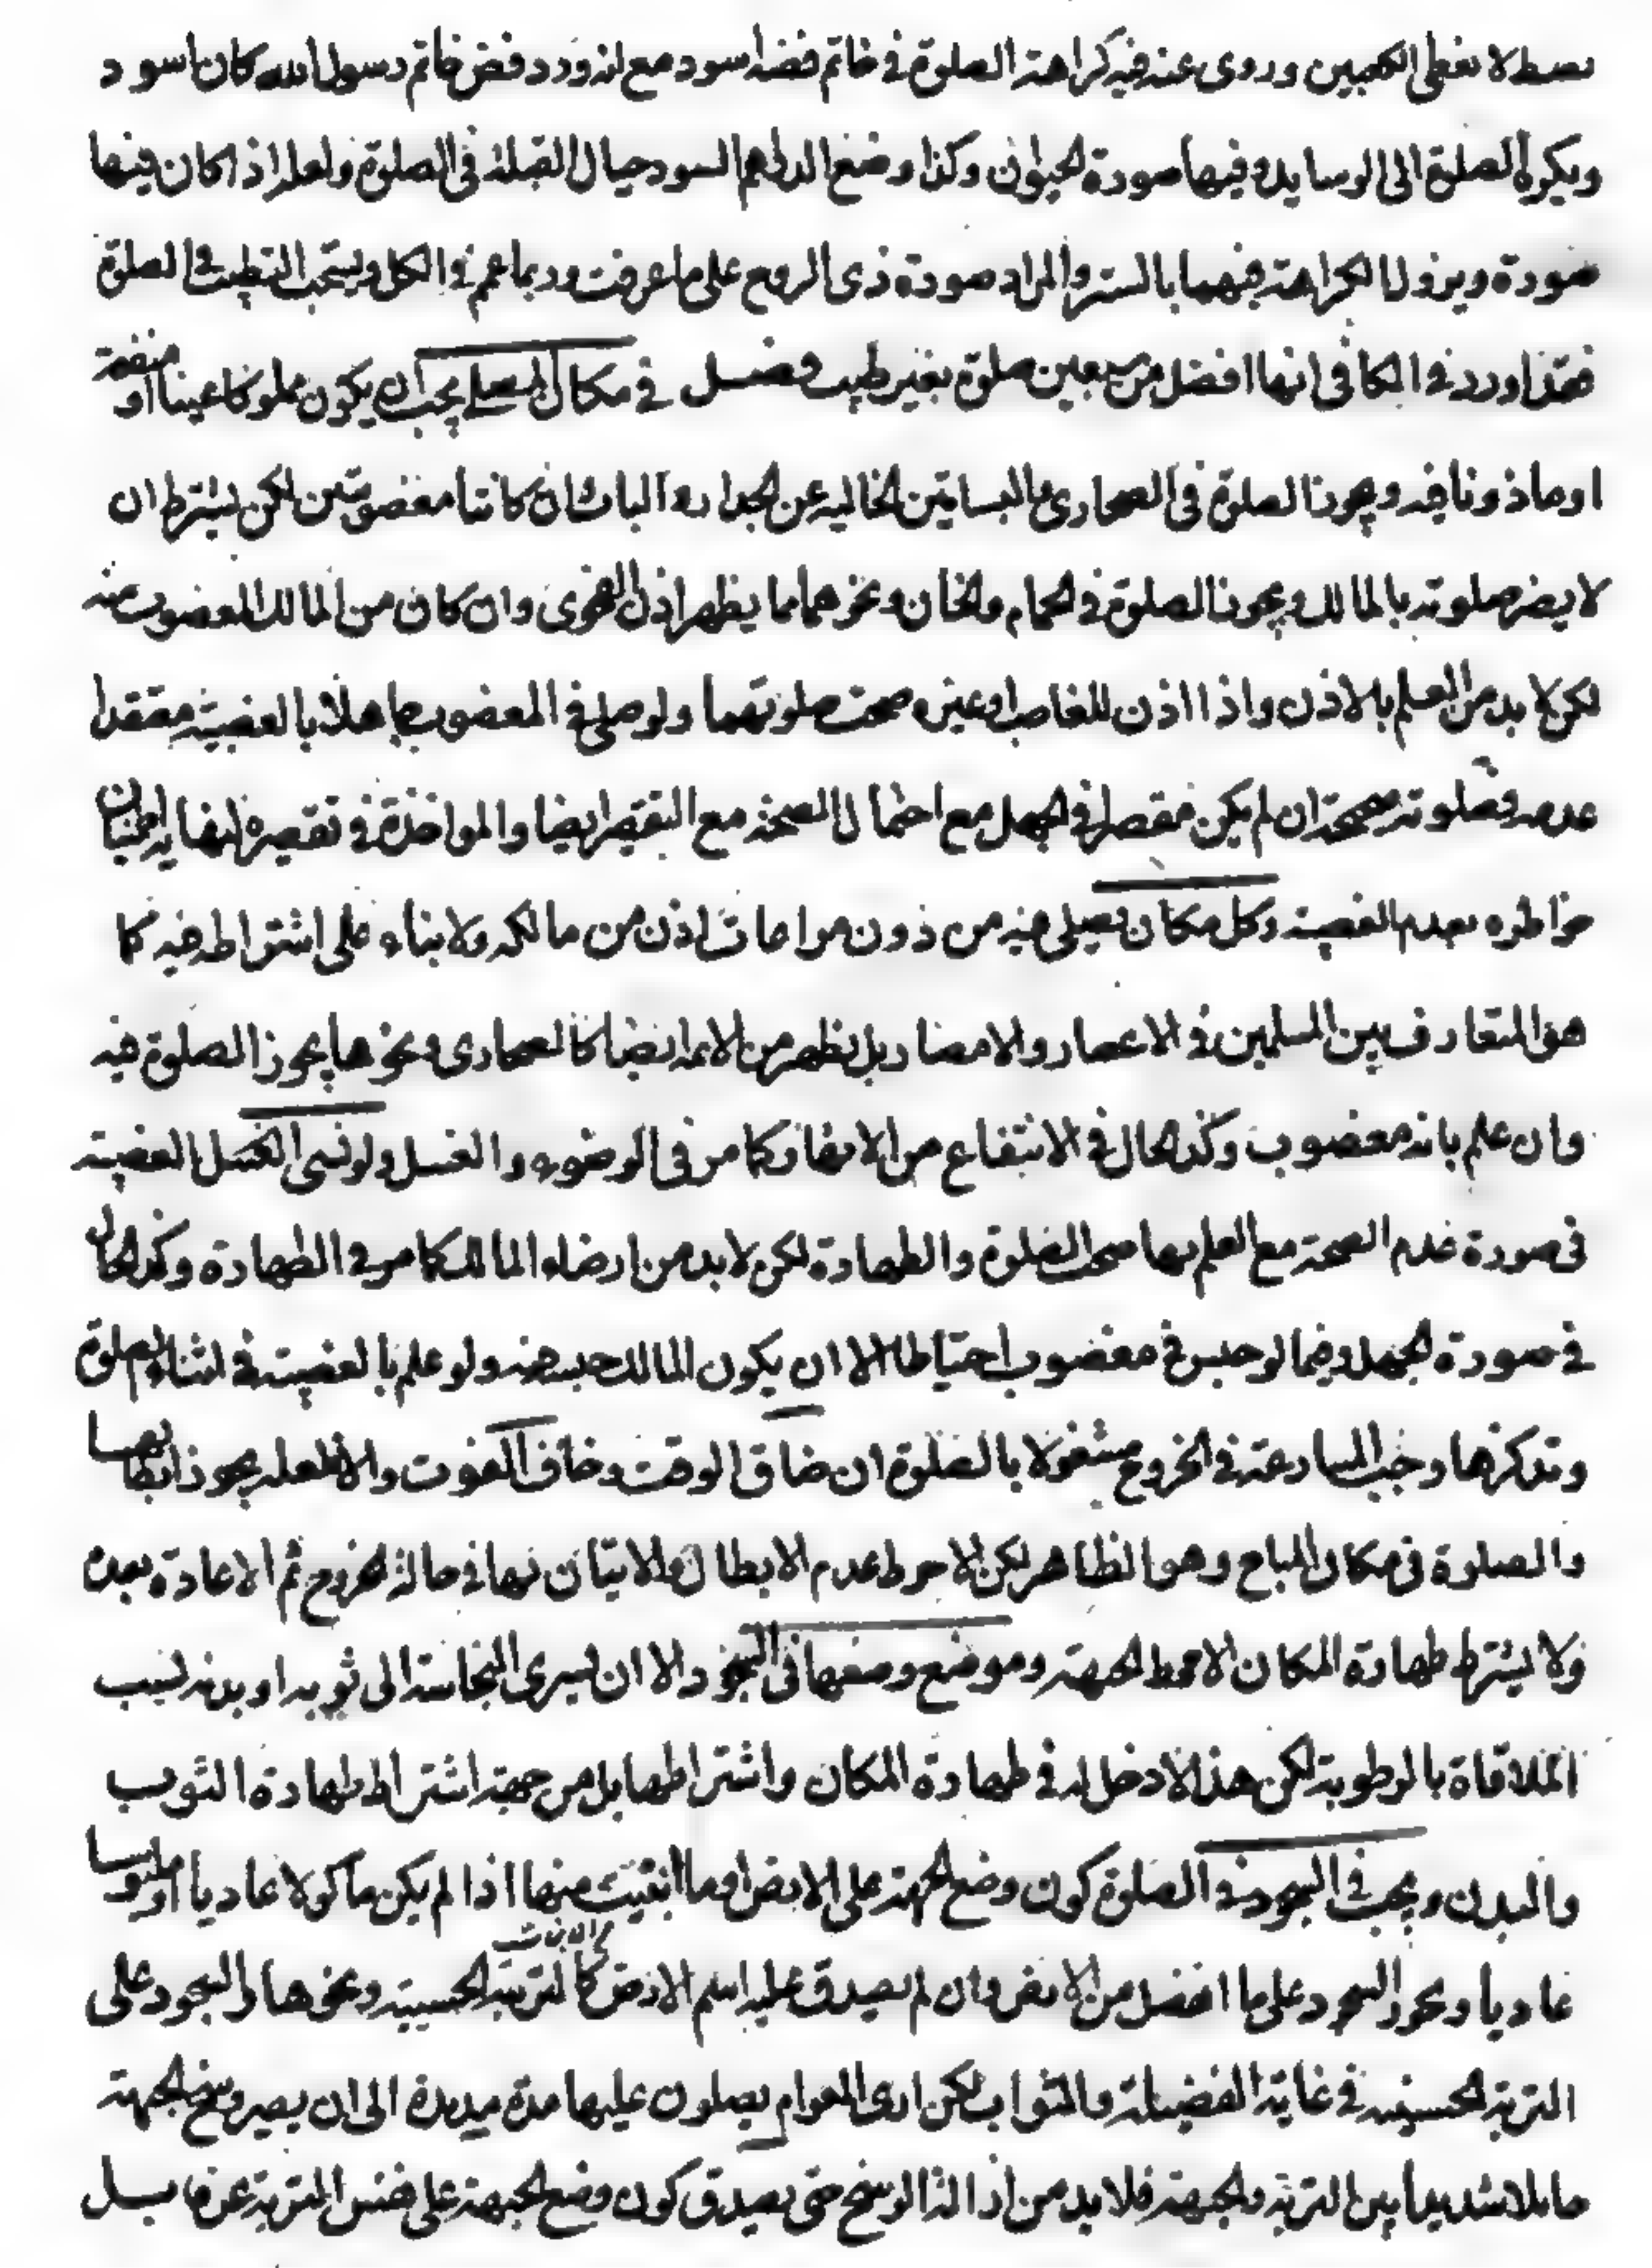 بسط لا يغطى الكعبين وروى عنه فيه كراهة الصلوة فى خاتم فضه اسود مع انه ورد فض خاتم رسول الله كان اسود
ويكره الصلوة الى الوسايد وفيها صورة الحيوان وكذا وضع الدراهم السود حيال القبلة فى الصلوة ولعله اذا كان فيها
صورة ويزول الكراهة فيهما بالستر والمراد صورة ذى الروح على ما عرفت وربما عم فى الكل ويستحب التطيب فى الصلوة
فقد اورد فى الكافى انها افضل من سبعين صلوة بغير طيب فصل فى مكان المصلى يجب ان يكون مملوكا عينا او منفعة
او ماذونا فيه ويجوز الصلوة فى الصحارى والبساتين الخاليه عن الجدار والباب وان كانتا مغصوبتين لكن يشترط ان
لا يضر صلوته بالمالك ويجوز الصلوة فى الحمام والخان ونحوهما مما يظهر اذن الفحوى وان كان من المالك المغضوب منه
لكن لا بد من العلم بالاذن واذا اذن للغاصب او غيره صحت صلوتهما ولو صلى فى المغضوب جاهلا بالغصبية معتقدا
عدمه فصلوته صحيحة ان لم يكن مقصرا فى الجهل مع احتمال الصحة مع التقصير ايضا والمواخذة فى تقصيره لغايه اطمينان
خاطره بعدم الغصبية وكل مكان يصلى فيه من دون مراعات اذن من مالكه ولا بناء على اشتراطه فيه كما
هو المتعارف بين المسلمين فى الاعصار والامصار بل يظهر من الائمه ايضا كالصحارى ونحوها يجوز الصلوة فيه
وان علم بانه مغضوب وكذا الحال فى الانتفاع من الانهار كما مر فى الوضوء والغسل ولو نسى الغسل الغصبية
فى صورة عدم الصحة مع العلم بها صحت الصلوة والطهارة لكن لا بد من ارضاء المالك كما مر فى الطهارة وكذا الحال
فى صورة الجهل وفيما لو حبس فى مغضوب احتياطا الا ان يكون المالك حبسه فيه ولو علم بالغصبية فى اثناء الصلوة
وتذكرها وجب المسارعة فى الخروج مشغولا بالصلوة ان ضاق الوقت وخاف الفوت والا فلعله يجوز ابطالها
والصلوة فى مكان المباح وهو الظاهر لكن الاحوط عدم الابطال والاتيان بها فى حالة الخروج ثم الاعادة بعده
ولا يشترط طهارة المكان الا محط الجبهة وموضع وضعها فى السجود الا ان يسرى النجاسة الى ثوبه او بدنه بسبب
الملاقاة بالرطوبة لكن هذا لا دخل له فى طهارة المكان واشتراطها بل من جهة اشتراط طهارة الثوب
والبدن ويجب فى السجود فى الصلوة كون وضع الجبهة على الارض او ما انبتت منها اذا لم يكن ماكولا عاديا او ملبوسا
عاديا ويجوز السجود على ما انفصل من الارض وان لم يصدق عليه اسم الارض كالتربة الحسينيه ونحوها والسجود على
التربة الحسينيه فى غاية الفضيلة والثواب لكن ارى العوام يصلون عليها مدة مديدة الى ان يصير وسخ الجبهة
حايلا شديدا بين التربة والجبهة فلا بد من ازالة الوسخ حتى يصدق كون وضع الجبهة على نفس التربة عن حايل